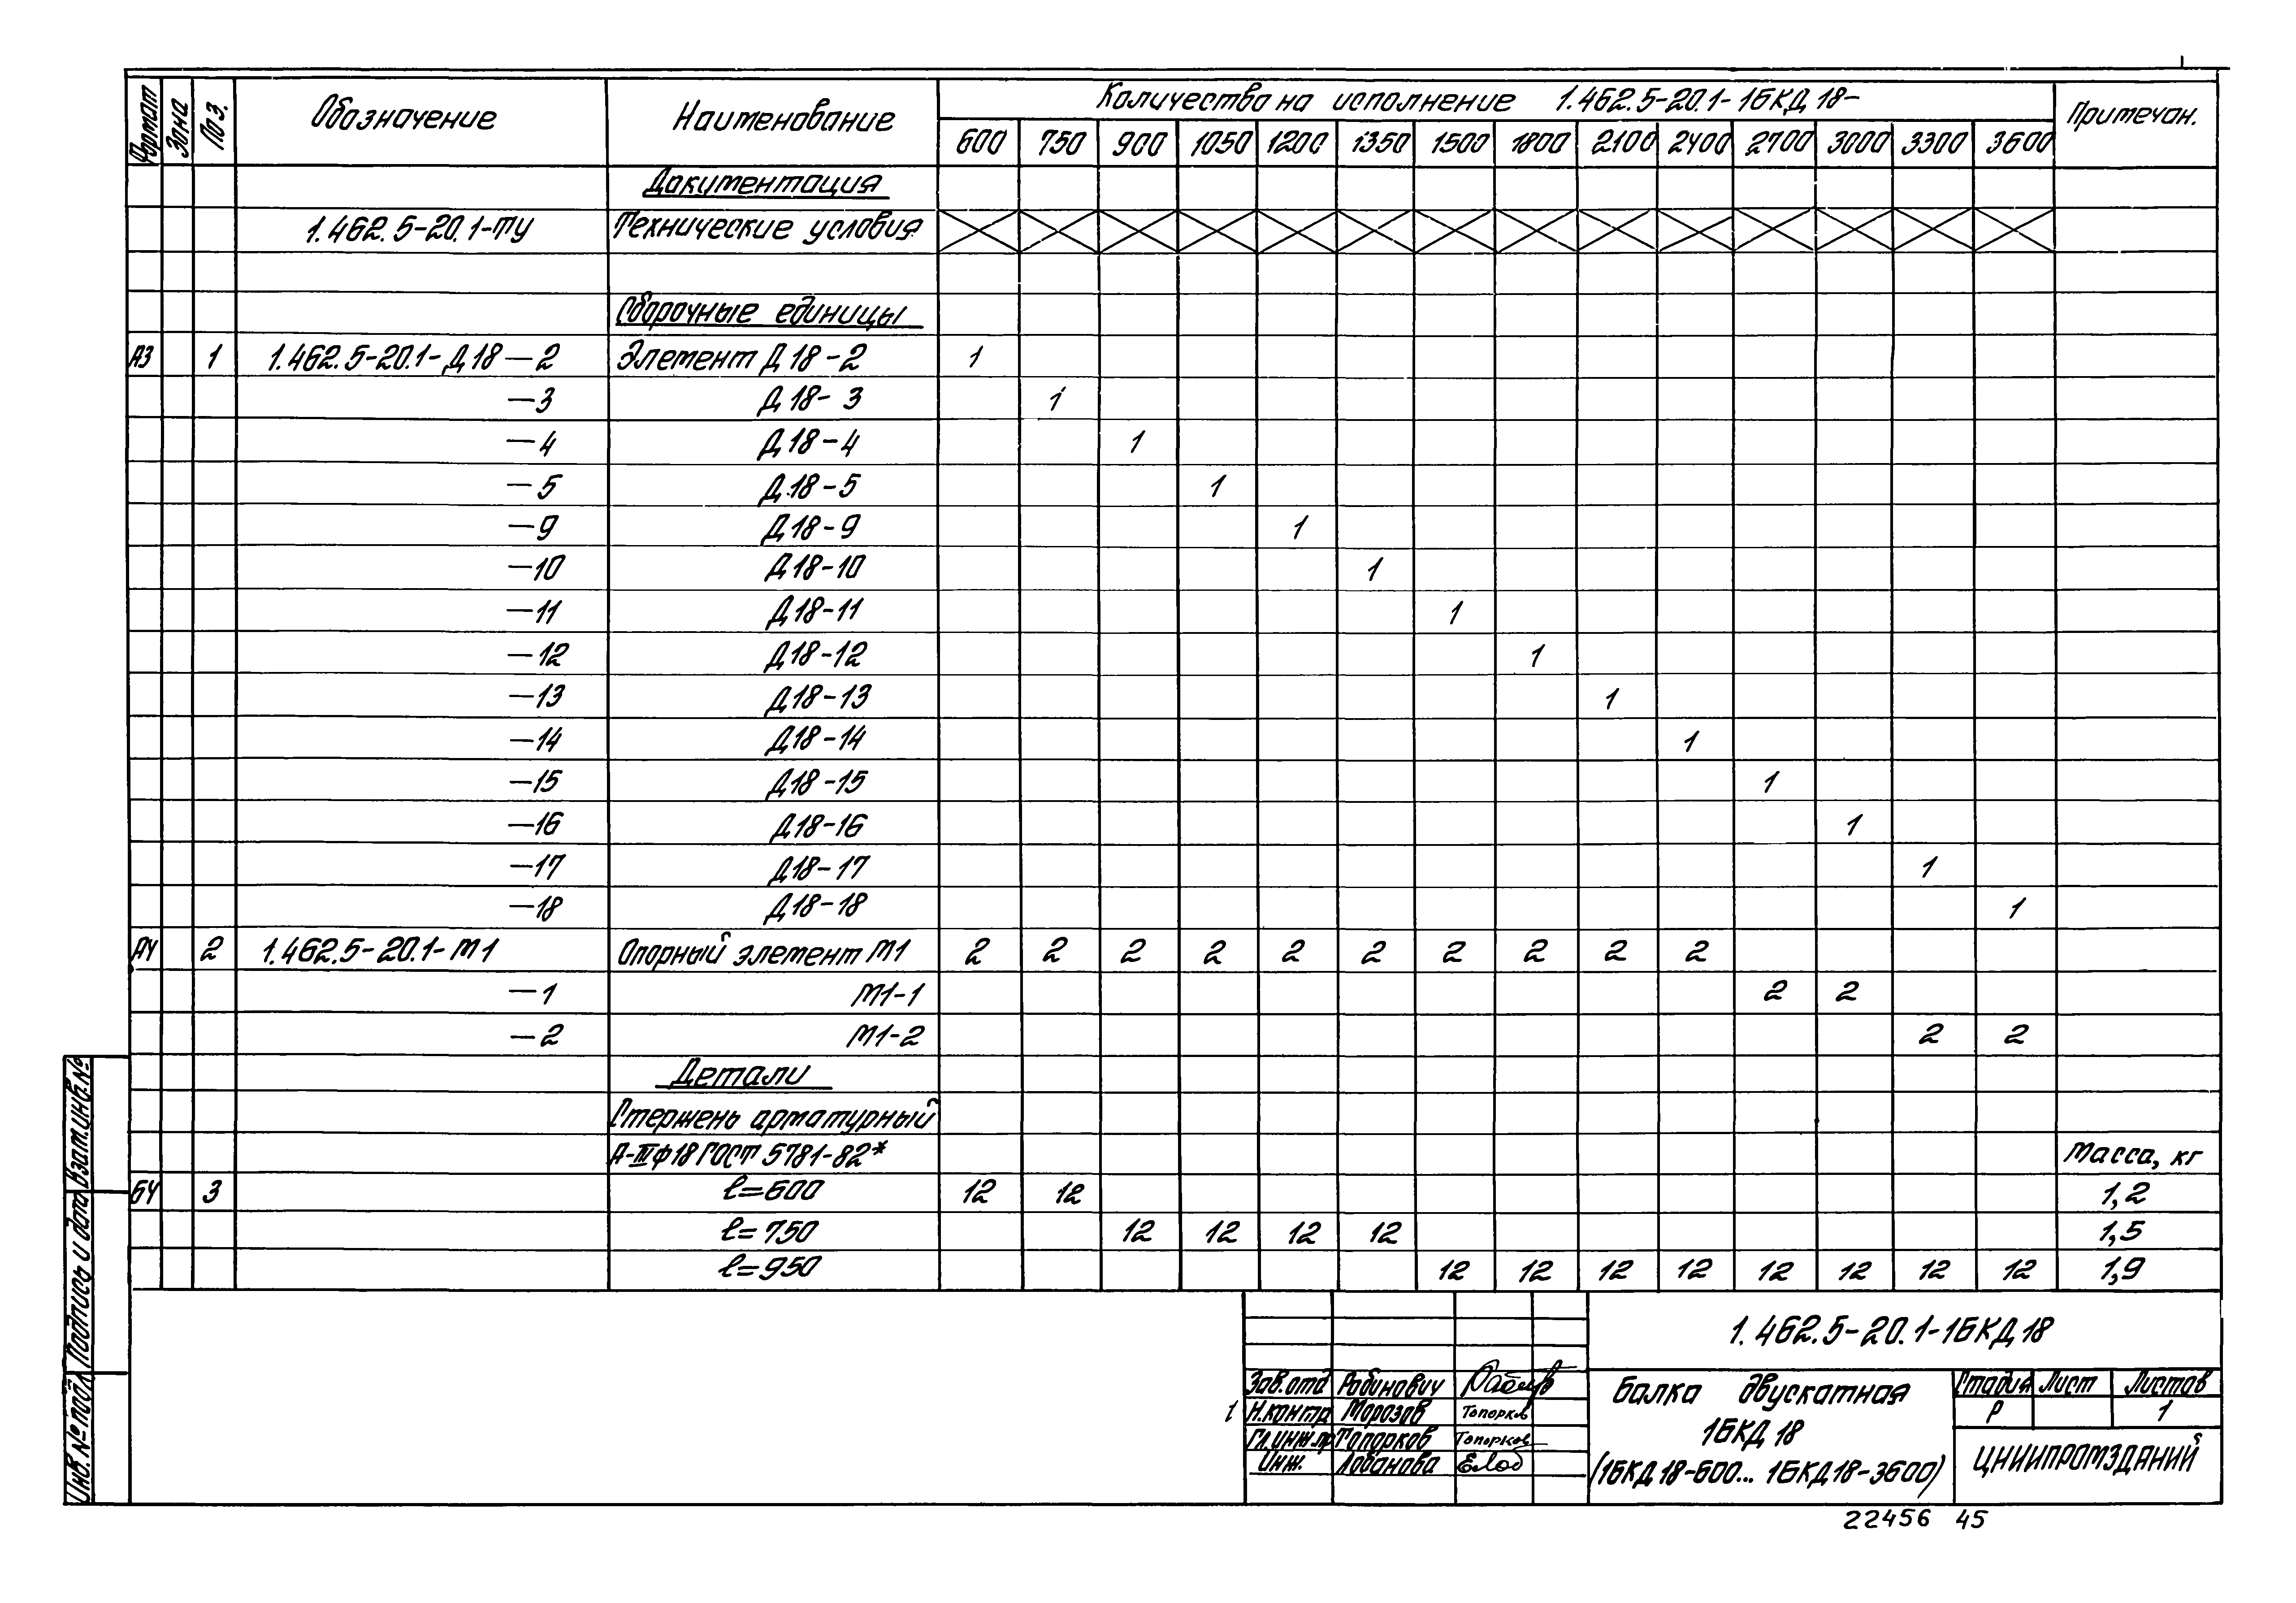 Формат Зона Поз. Обозначение Наименование Количество на исполнение 1.462.5-20.1-1БКД 18- Примечан.
600 750 900 1050 1200 1350 1500 1800 2100 2400 2700 3000 3300 3600
Документация
1.462.5-20.1-ТУ Технические условия
Сборочные единицы
А3 1 1.462.5-20.1-Д18-2 Элемент Д 18-2 1
-3 Д 18-3 1
-4 Д 18-4 1
-5 Д 18-5 1
-9 Д 18-9 1
-10 Д 18-10 1
-11 Д 18-11 1
-12 Д 18-12 1
-13 Д 18-13 1
-14 Д 18-14 1
-15 Д 18-15 1
-16 Д 18-16 1
-17 Д 18-17 1
-18 Д 18-18 1
А4 2 1.462.5-20.1-М1 Опорный элемент М1 2 2 2 2 2 2 2 2 2 2
-1 М1-1 2 2
-2 М1-2 2 2
Детали
Стержень арматурный
А-III Ф18 ГОСТ 5781-82* Масса, кг
БЧ 3 ℓ=600 12 12 1,2
ℓ=750 12 12 12 12 1,5
ℓ=950 12 12 12 12 12 12 12 12 1,9
Взам.инв.№
Подпись и дата
Инв. № подл
1.462.5-20.1-1БКД 18
Зав.отд Рабинович
Н.контр Морозов Топорков
Гл.инж.пр Топорков Топорков
Инж. Лобанова Елоб
Балка двускатная
1БКД 18
(1БКД 18-600... 1БКД18-3600)
Стадия Лист Листов
Р 1
ЦНИИПРОМЗДАНИЙ
22456 45